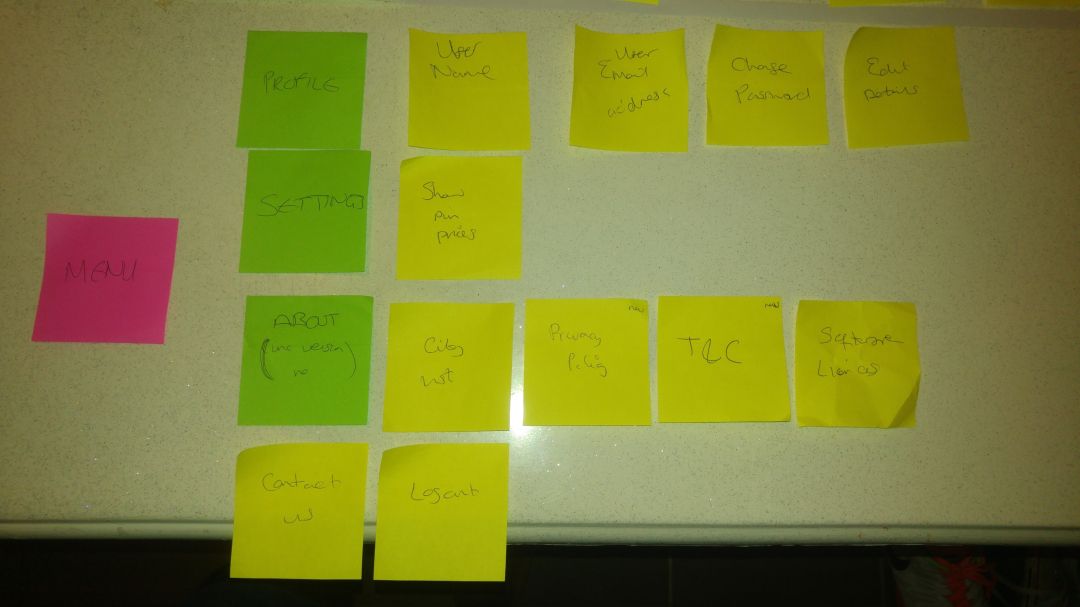 PROFILE
User
Name
User
Email
address
Change
Password
Edit
Details
SETTINGS
Show
pin
prices
MENU
ABOUT
(inc version
no)
City
list
new
Privacy
Policy
new
T&C
Software
Contact
us
Logout